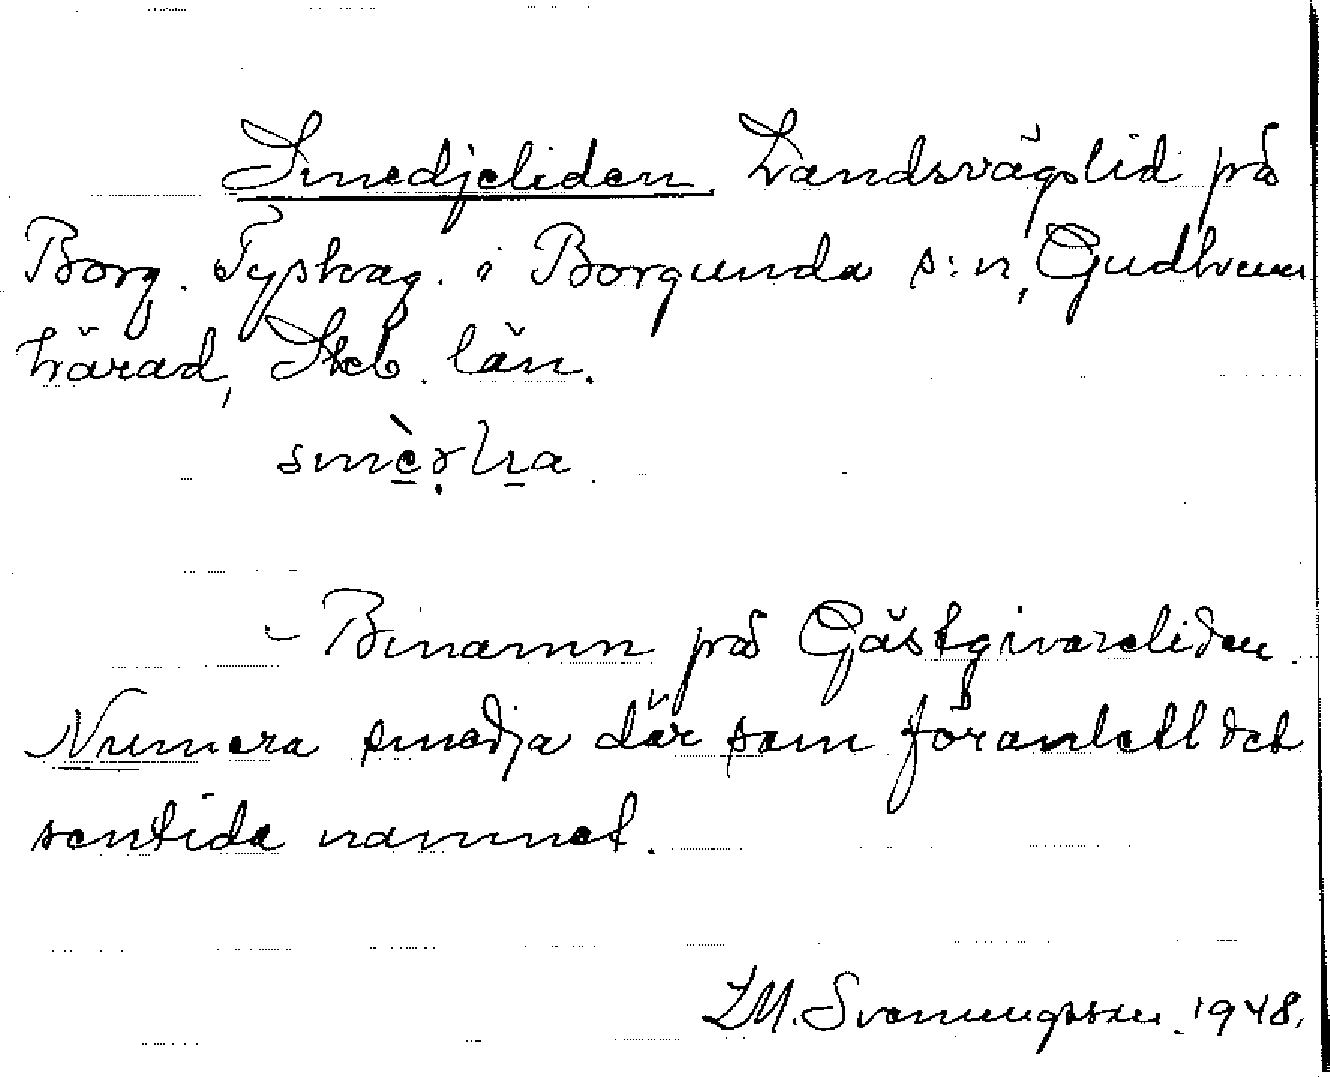 Smedjeliden Landsvägslid på
Borg. Tyskag. i Borgunda s:n, Gudhems
härad, Skb. län.
– Binamn på Gästgivareliden.
Numera smedja där som föranlett det
sentida namnet.
LM. Svenungsson. 1948.